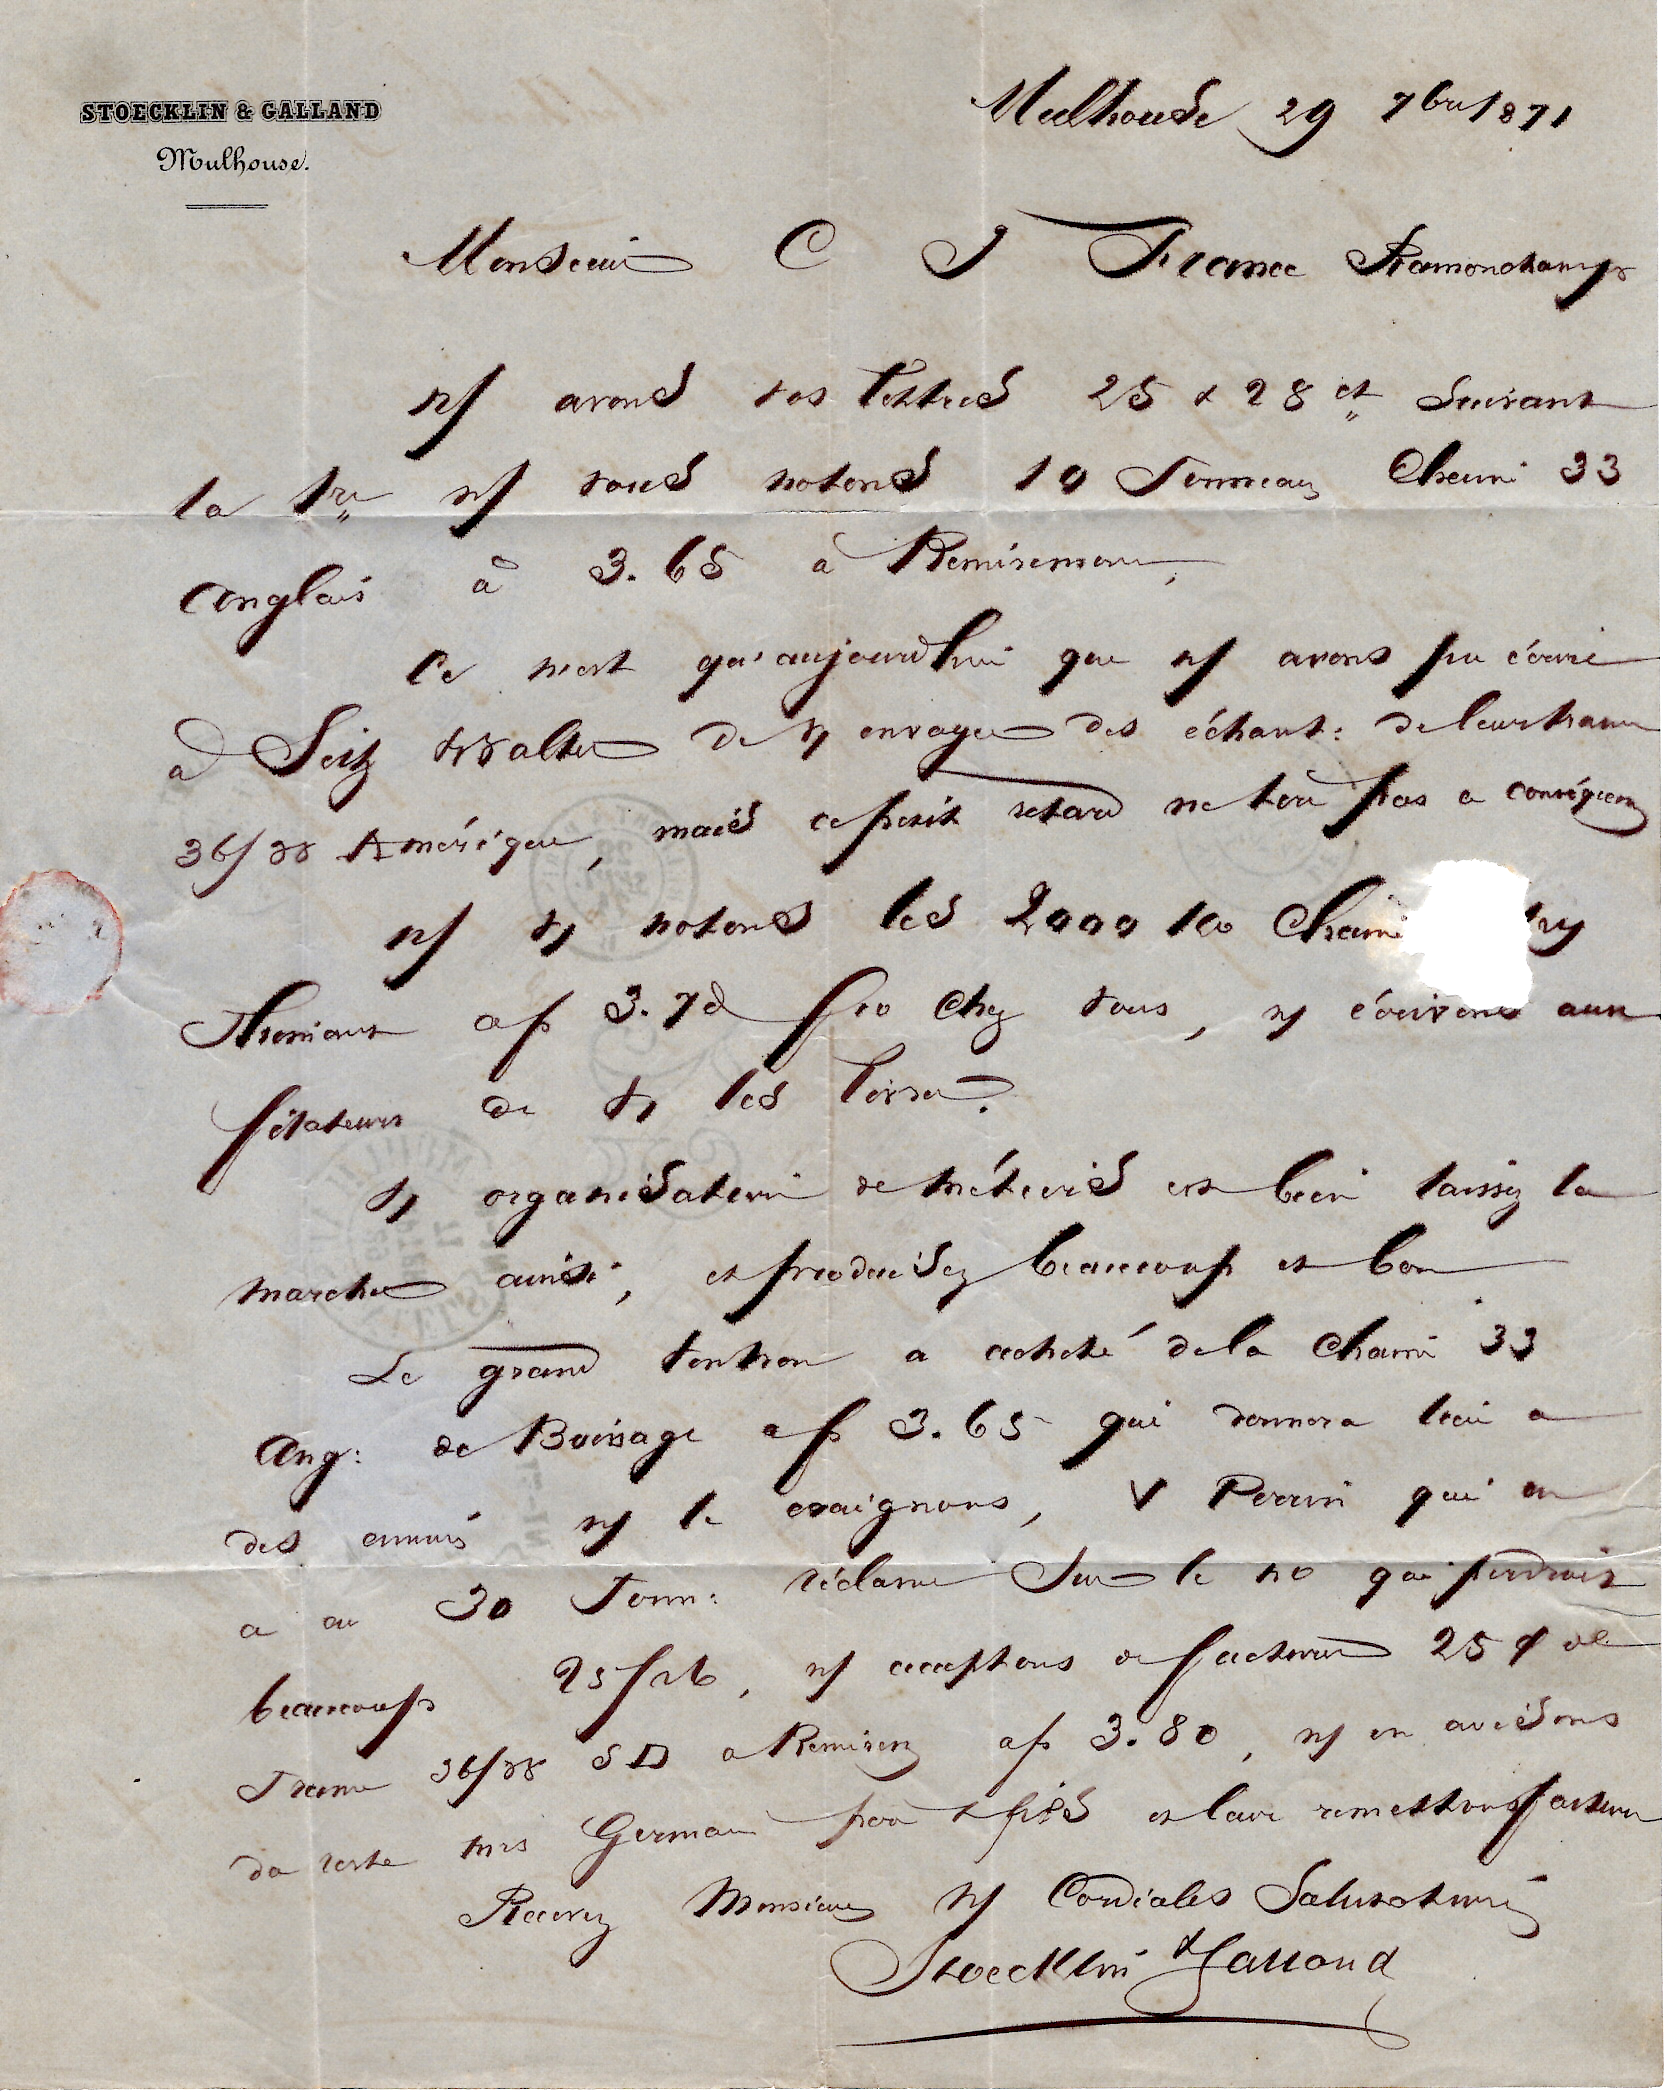 STOECKLIN & GALLAND
Mulhouse.
Mulhouse 29 7bre 1871
Monsieur C J France Ramonchamp
n/ avons vos lettres 25 & 28 ct Suivant
la 1re n/ vous notons 10 Tonneaux Chaine 33
anglais à 3.65 à Remiremont,
Ce n'est qu'aujourd'hui que n/ avons pu écrire
à Seitz Walter de v/ envoyer des échant: de leur trame
36/38 Amérique, mais ce petit retard ne tire pas a conséquence
n/ v/ notons les 2000 ko Chaine
Thoniant a f 3.70 fco chez vous, n/ écrivons aux
filateurs de v/ les livrer.
v/ organisation de métiers est bien laissez la
marcher ainsi, et produisez beaucoup et bon
Le grand Ventron a acheté de la chaine 33
Ang: de Boissage a f 3.65 qui donnera lieu a
des ennuis n/ le craignons, V Perrin qui en
a eu 30 Tonn: réclame Sur le no qui perdrait
beaucoup 25/26, n/ acceptons de facturer 25 de
Trame 36/38 SD a Remirem a f 3.80, n/ en avisons
du reste mrs Germain pour et leur remettons facture
Recevez Monsieur n/ Cordiales Salutations
Stoecklin & Galland